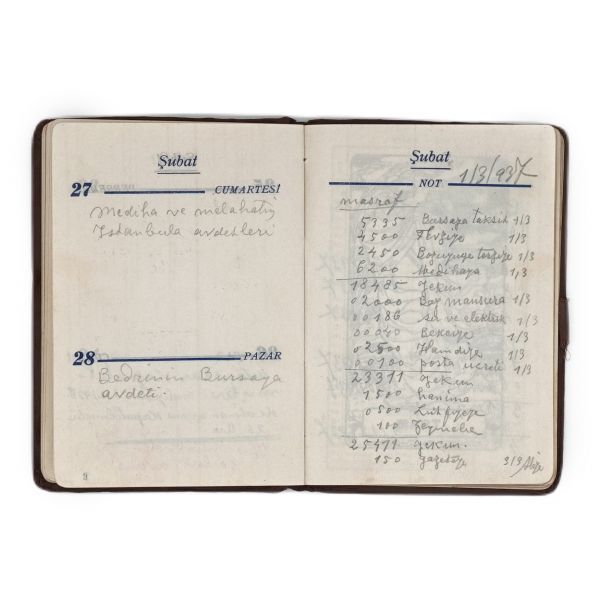 Şubat
27 CUMARTESİ
Mediha ve melahatin
Istanbula avdetleri
28 PAZAR
Bedrinin Bursaya
avdeti.
Şubat
NOT 1/3/937
masraf
5335 Bursaya taksit 1/3
4500 Tevfiğe 1/3
2450 1/3
6200 Medihaya 1/3
18485 Yekun
02000 Bay mansura 1/3
00186 su ve elektrik 1/3
Bekciye 1/3
02500 Hamdiye 1/3
00100 posta ücreti 1/3
23311 Yekun
1500 hanima
0500 Lütfiyeye
100 Zeynebe
25411 Yekun.
150 gazeteye 3/3